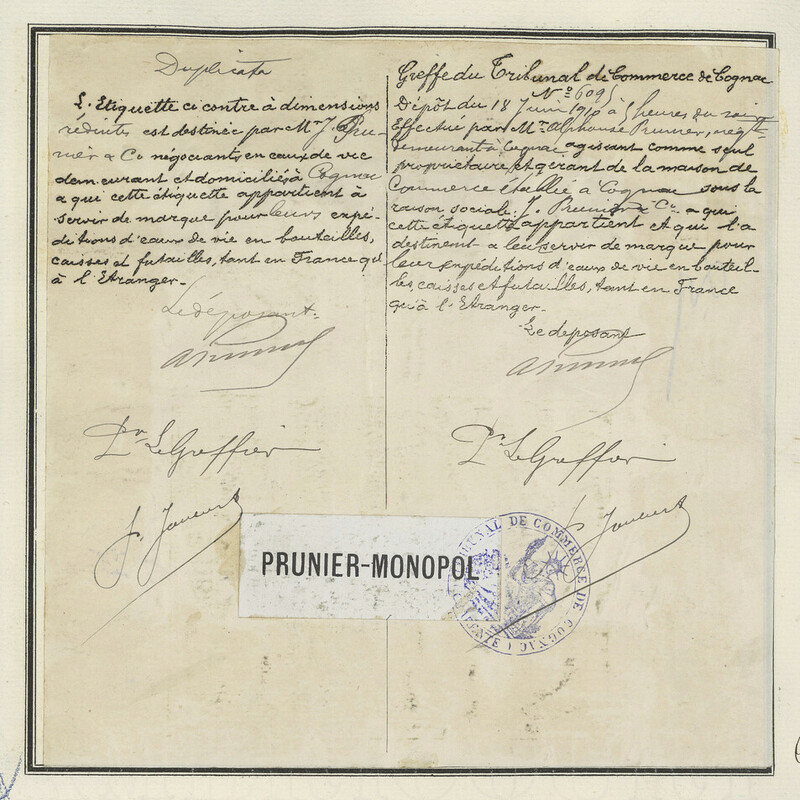 Duplicata
L'Etiquette ci contre à dimensions
réduites est destinée par Mr J. Pru-
nier & Co négociants en eaux de vie
demeurant et domiciliés à Cognac
a qui cette étiquette appartient à
servir de marque pour leurs expé-
ditions d'eaux de vie en bouteilles,
caisses et futailles, tant en France qu'
à l'Etranger.-
Le déposant.
Pr Le Greffier
Greffe du Tribunal de Commerce de Cognac
No 6095
Dépôt du 18 Juin 1910 à 5 heures du soir
Effectué par Mr Alphonse Prunier, négt
demeurant à Cognac agissant comme seul
propriétaire et gérant de la maison de
Commerce établie à Cognac sous la
raison sociale: J. Prunier & Co a qui
cette étiquette appartient et qui l'a
destinent a leur servir de marque pour
leur expéditions d'eaux de vie en bouteil-
les, caisses et futailles, tant en France
qu'à l'Etranger.-
Le deposant
Pr Le Greffier
PRUNIER-MONOPOL
TRIBUNAL DE COMMERCE DE COGNAC